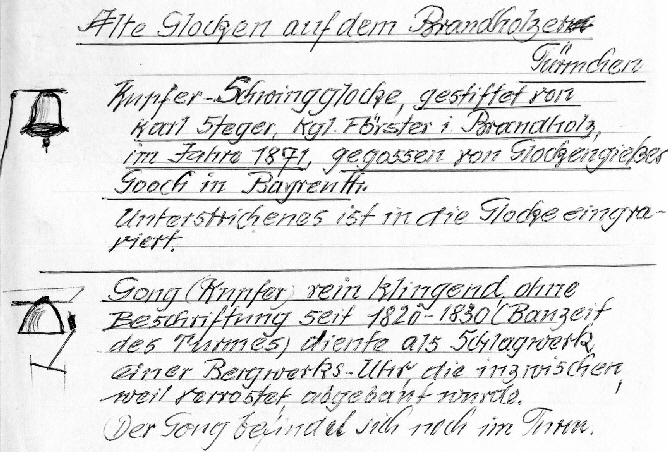 Alte Glocken auf dem Brandholzer
Türmchen
Kupfer-Schwingglocke, gestiftet von
Karl Steger, Kgl. Förster i Brandholz,
im Jahre 1871, gegossen von Glockengießer
Gooch in Bayreuth.
Unterstrichenes ist in die Glocke eingra-
viert.
Gong (Kupfer) rein klingend, ohne
Beschriftung seit 1820-1830 (Bauzeit
des Turmes) diente als Schlagwerk
einer Bergwerks-Uhr, die inzwischen,
weil verrostet, abgebaut wurde.
(Der Gong befindet sich noch im Turm.